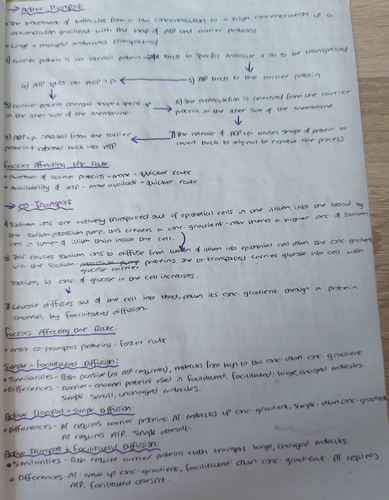 Active Transport
• The movement of molecules from a low concentration to a high concentration up a
concentration gradient with the help of ATP and carrier proteins
• Large + charged molecules transported
1) carrier protein is an intrinsic protein → it binds to specific molecule + ion to be transported
3) ATP binds to the carrier protein
4) ATP splits into ADP + Pi
5) carrier protein changes shape + opens up
on the other side of the membrane
6) The molecule/ion is released from the carrier
protein on the other side of the membrane
7) The release of ADP + Pi causes shape of protein to
revert back to original (to repeat the process)
8) ADP + Pi released from the carrier
protein + reformed back into ATP
Factors affecting the Rate
• Number of carrier proteins - more = quicker rate
• Availability of ATP - more available = quicker rate
→ Co-Transport
1) Sodium ions are actively transported out of epithelial cells in the ilium, into the blood by
the sodium-potassium pump, this creates a conc. gradient - now there's a higher conc of sodium
ions in lumen of ilium than inside the cell.
2) This causes sodium ions to diffuse from lumen of ilium into epithelial cell down the conc. gradient
via the sodium glucose carrier proteins, the co-transported carries glucose into cell with
sodium, so conc of glucose in the cell increases.
3) Glucose diffuses out of the cell into blood, down its conc. gradient through a protein
channel, by facilitated diffusion.
Factors Affecting the Rate:
• more co-transport proteins = faster rate
Simple + Facilitated Diffusion:
• Similarities - Both passive (no ATP required), molecules from high to low conc. down conc. gradient
• Differences - carrier + channel proteins used in facilitated, facilitated: large, charged molecules
Simple: small, uncharged molecules.
Active Transport + Simple Diffusion:
• Differences - AT requires carrier proteins. AT: molecules up conc. gradient, Simple - down conc. gradient
AT requires ATP, simple doesn't.
Active Transport + Facilitated Diffusion:
• Similarities - Both require carrier proteins + both transport large, charged molecules.
• Differences - AT: move up conc. gradient, facilitated: down conc. gradient. AT requires
ATP, facilitated doesn't.